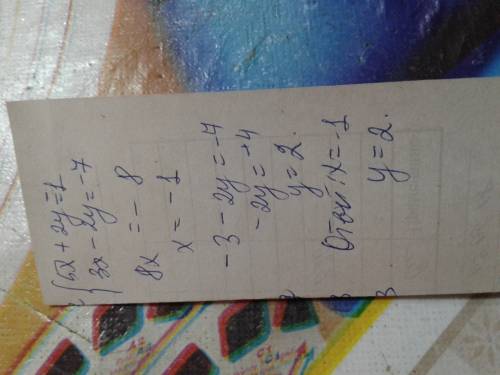 { 5x + 2y = 1
3x - 2y = -7
8x = -8
x = -1
-3 - 2y = -7
-2y = -4
y = 2.
Ответ: x = -1
y = 2.